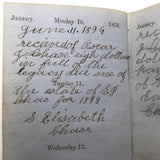 January. Monday 10. 1898.
June 11. 1894
received of Oscar
J Chase eight dollars
in full of the
legacy due me of
Tuesday 11.
the estate of E P
Chase for 1893
S Elisabeth
Chase
Wednesday 12.